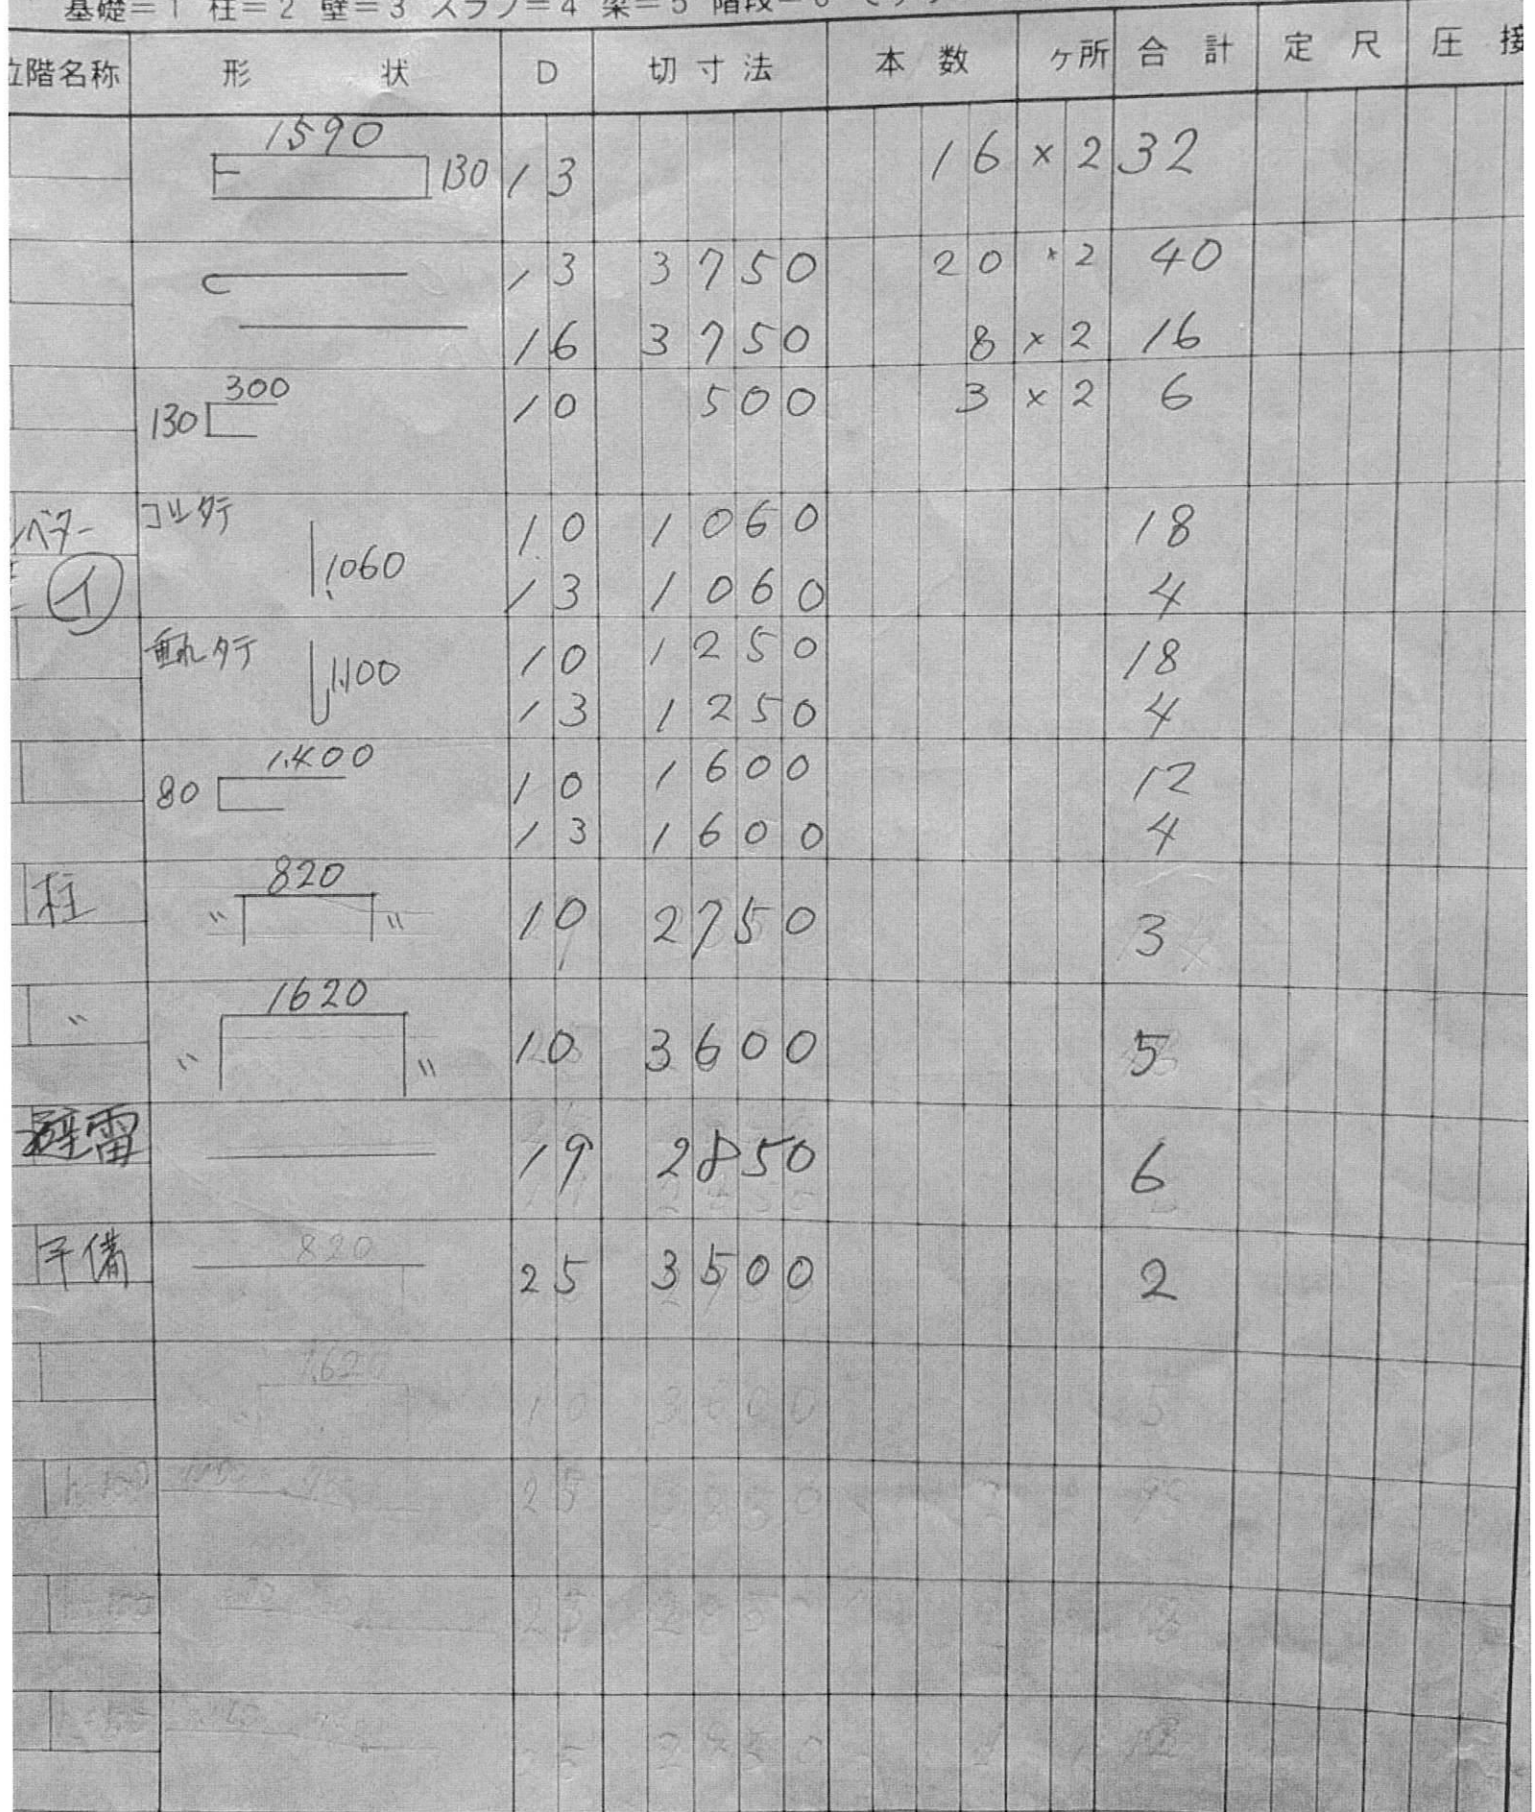 基礎=1 柱=2 壁=3 スラブ=4 梁=5 階段=6
位階名称 形 状 D 切寸法 本数 ヶ所 合計 定尺 圧接
1590
130 13 16 × 2 32
13 3750 20 × 2 40
16 3750 8 × 2 16
300
130 10 500 3 × 2 6
ベター コシタテ 10 1060 18
イ 1060 13 1060 4
垂れタテ 1100 10 1250 18
13 1250 4
1400 10 1600 12
80 13 1600 4
820
柱 〃 〃 10 2750 3
1620
〃 〃 〃 10 3600 5
避雷 19 2850 6
予備 25 3500 2
820
1620
10 3600 5